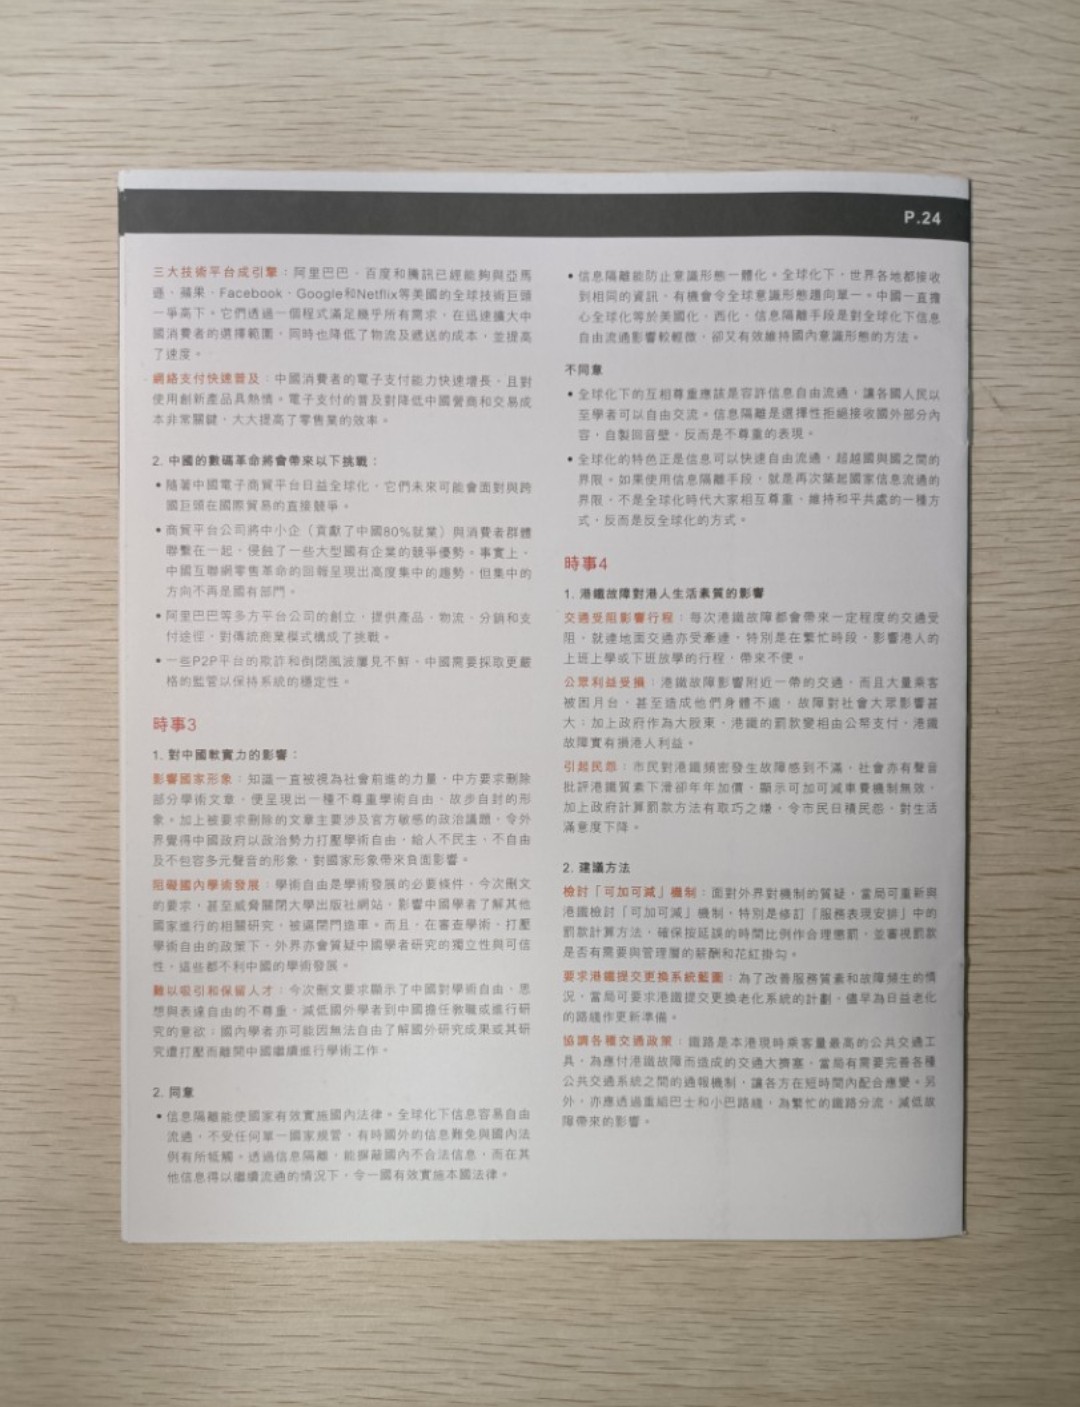 P.24
三大技術平台成引擎：阿里巴巴、百度和騰訊已經能夠與亞馬
遜、蘋果、Facebook、Google和Netflix等美國的全球技術巨頭
一爭高下。它們透過一個程式滿足幾乎所有需求，在迅速擴大中
國消費者的選擇範圍，同時也降低了物流及遞送的成本，並提高
了速度。
網絡支付快速普及：中國消費者的電子支付能力快速增長，且對
使用創新產品具熱情。電子支付的普及對降低中國營商和交易成
本非常關鍵，大大提高了零售業的效率。
2. 中國的數碼革命將會帶來以下挑戰：
• 隨著中國電子商貿平台日益全球化，它們未來可能會面對與跨
國巨頭在國際貿易的直接競爭。
• 商貿平台公司將中小企（貢獻了中國80%就業）與消費者群體
聯繫在一起，侵蝕了一些大型國有企業的競爭優勢。事實上，
中國互聯網零售革命的回報呈現出高度集中的趨勢，但集中的
方向不再是國有部門。
• 阿里巴巴等多方平台公司的創立，提供產品、物流、分銷和支
付途徑，對傳統商業模式構成了挑戰。
• 一些P2P平台的欺詐和倒閉風波屢見不鮮，中國需要採取更嚴
格的監管以保持系統的穩定性。
時事3
1. 對中國軟實力的影響：
影響國家形象：知識一直被視為社會前進的力量，中方要求刪除
部分學術文章，便呈現出一種不尊重學術自由、故步自封的形
象。加上被要求刪除的文章主要涉及官方敏感的政治議題，令外
界覺得中國政府以政治勢力打壓學術自由，給人不民主、不自由
及不包容多元聲音的形象，對國家形象帶來負面影響。
阻礙國內學術發展：學術自由是學術發展的必要條件，今次刪文
的要求，甚至威脅關閉大學出版社網站，影響中國學者了解其他
國家進行的相關研究，被逼閉門造車。而且，在審查學術、打壓
學術自由的政策下，外界亦會質疑中國學者研究的獨立性與可信
性，這些都不利中國的學術發展。
難以吸引和保留人才：今次刪文要求顯示了中國對學術自由、思
想與表達自由的不尊重，減低國外學者到中國擔任教職或進行研
究的意欲；國內學者亦可能因無法自由了解國外研究成果或其研
究遭打壓而離開中國繼續進行學術工作。
2. 同意
• 信息隔離能使國家有效實施國內法律。全球化下信息容易自由
流通，不受任何單一國家規管，有時國外的信息難免與國內法
例有所牴觸。透過信息隔離，能摒蔽國內不合法信息，而在其
他信息得以繼續流通的情況下，令一國有效實施本國法律。
• 信息隔離能防止意識形態一體化。全球化下，世界各地都接收
到相同的資訊，有機會令全球意識形態趨向單一。中國一直擔
心全球化等於美國化、西化，信息隔離手段是對全球化下信息
自由流通影響較輕微，卻又有效維持國內意識形態的方法。
不同意
• 全球化下的互相尊重應該是容許信息自由流通，讓各國人民以
至學者可以自由交流。信息隔離是選擇性拒絕接收國外部分內
容，自製回音壁，反而是不尊重的表現。
• 全球化的特色正是信息可以快速自由流通，超越國與國之間的
界限。如果使用信息隔離手段，就是再次築起國家信息流通的
界限，不是全球化時代大家相互尊重、維持和平共處的一種方
式，反而是反全球化的方式。
時事4
1. 港鐵故障對港人生活素質的影響
交通受阻影響行程：每次港鐵故障都會帶來一定程度的交通受
阻，就連地面交通亦受牽連，特別是在繁忙時段，影響港人的
上班上學或下班放學的行程，帶來不便。
公眾利益受損：港鐵故障影響附近一帶的交通，而且大量乘客
被困月台，甚至造成他們身體不適，故障對社會大眾影響甚
大；加上政府作為大股東，港鐵的罰款變相由公帑支付，港鐵
故障實有損港人利益。
引起民怨：市民對港鐵頻密發生故障感到不滿，社會亦有聲音
批評港鐵質素下滑卻年年加價，顯示可加可減車費機制無效，
加上政府計算罰款方法有取巧之嫌，令市民日積民怨，對生活
滿意度下降。
2. 建議方法
檢討「可加可減」機制：面對外界對機制的質疑，當局可重新與
港鐵檢討「可加可減」機制，特別是修訂「服務表現安排」中的
罰款計算方法，確保按延誤的時間比例作合理懲罰，並審視罰款
是否有需要與管理層的薪酬和花紅掛勾。
要求港鐵提交更換系統藍圖：為了改善服務質素和故障頻生的情
況，當局可要求港鐵提交更換老化系統的計劃，儘早為日益老化
的路綫作更新準備。
協調各種交通政策：鐵路是本港現時乘客量最高的公共交通工
具，為應付港鐵故障而造成的交通大擠塞，當局有需要完善各種
公共交通系統之間的通報機制，讓各方在短時間內配合應變。另
外，亦應透過重組巴士和小巴路綫，為繁忙的鐵路分流，減低故
障帶來的影響。